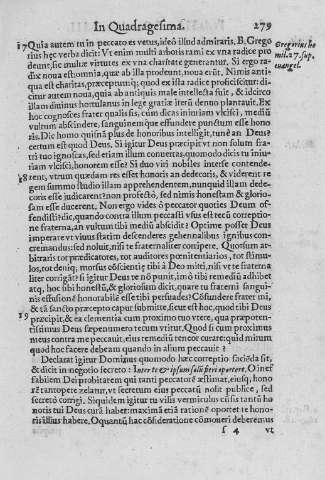 In Quadragesima. 279
17 Quia autem tu in peccato es vetus, ideó illud admiraris. B. Grego
rius hęc verba dicit: Vt enim multi arbotis rami ex vna radice pro
deunt, sic multæ virtutes ex vna charitate generantur. Si ergo ra-
dix noua est omnia, quæ ab illa prodeunt, noua erút. Nimis anti-
qua est charitas, præceptumq; quod ex illa radice prosiciscitur: di-
citur autem noua, quia ab antiquis male intellecta fuit, & idcirco
illam diuinus hortulanus in lege gratiæ iterũ denuo plantauit. Ex
hoc cognosces frater qualis sis, cum dicas iniuriam vlcisci, medijq́
vultum abscindere, sanguinemque effundere punctum esse hono
ris. Dic homo quit̃nã plus de honoribus intelligit, tu ne an Deus?
certum est quod Deus. Si igitur Deus præcipit vt non solum fra-
tri tuo ignoscas, sed etiam illum conuertas, quomodo dicis tu iniu-
riam vlcisci, honorem esse? Si duo viri nobiles interse contende-
18 rent, vtrum quædam res esset honoris an dedecoris, & viderent re
gem summo studio illam apprehendentem, nunquid illam dede-
coris esse iudicarent? non profectò, sed nimis honestam & glorio-
sam esse ducerent. Non ergo vides ô peccator quoties Deum of-
fendisti? dic, quando contra illum peccasti vsus est tecũ correptio-
ne fraterna, an vultum tibi medijs abscidit? Optime posset Deus
imperare vt viuus statim descenderes gehennalibus ignibus con-
cremandus: sed noluit, nisi te fraternaliter corripere. Quot sum ar-
bitraris tot prædicatores, tot auditores pœnitentiarios, tot stimu-
los, tot deniq; morsus cõscientię tibi à Deo mitti, nisi vt te fraterna
liter corrigat? si igitur Deus te nõ punit, imò tibi remediũ adhibet
atq; hoc sibi honestũ, & gloriosum dicit, quare tu fraterni sangui-
nis effusionẽ honorabilẽ esse tibi persuades? Cõfundere frater mi,
& tã sancto præcepto caput submitte, scitue est hoc, quod tibi Deus
19 præcipit, & ea clementia cum proximo tuo vtere, qua præpoten-
tissimus Deus sæpenumero tecum vtitur. Quod si cum proximus
meus contra me peccauit, eius remediũ tenear curare: quid mirum
quod hoc facere debeam quando in alium peccauit?
Declarat igitur Dominus quomodo hæc correptio faciẽda sit,
& dicit in negotio secreto: Inter te & ipsum solũ fieri oportere. O inef
fabilem Dei probitatem qui tanti peccatorẽ æstimat, eiusq; hono
rẽ tantopere zelatur, vt secretum eius peccatũ nolit publice, sed
secretò corrigi. Siquidem igitur tu vilis vermiculus cũ sis tantũ ho
noris tui Deus curã habet: maxima etiã ratione oportet te hono-
ris illius habere. O quantũ hac cõsideratione cõmoneri deberemus
f 4 vt
Gregorius ho
mil. 27. sup.
euangel.